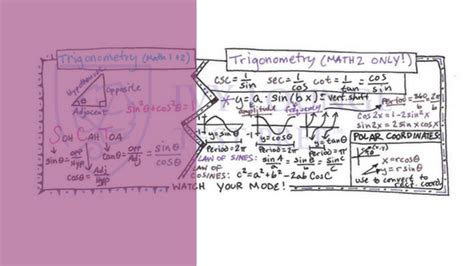 Trigonometry (Math 1+2)
Hypothenuse
Opposite
θ
Adjacent
sin²θ+cos²θ=1
SOH CAH TOA
sinθ= opp/Hyp
cosθ= Adj/Hyp
tanθ= OPP/Adj = sinθ/cosθ
Trigonometry (MATH 2 ONLY!)
csc= 1/sin sec= 1/cos cot= 1/tan = cos/sin
*y=a sin(bx)± vert. shift
amplitude frequency
Period= 360/b, 2π/b
cos2x=1-2sin²x
sin2x=2sinxcosx
y=sinθ
Period=2π
y=cosθ
Period=2π
y=tanθ
Period=π
LAW OF SINES: sinA/a = sinB/b = sinC/c
LAW OF
COSINES: c²=a²+b²-2ab cos C
POLAR COORDINATES:
x=rcosθ
y=rsinθ
use to convert to
rect. coord.
WATCH YOUR MODE!